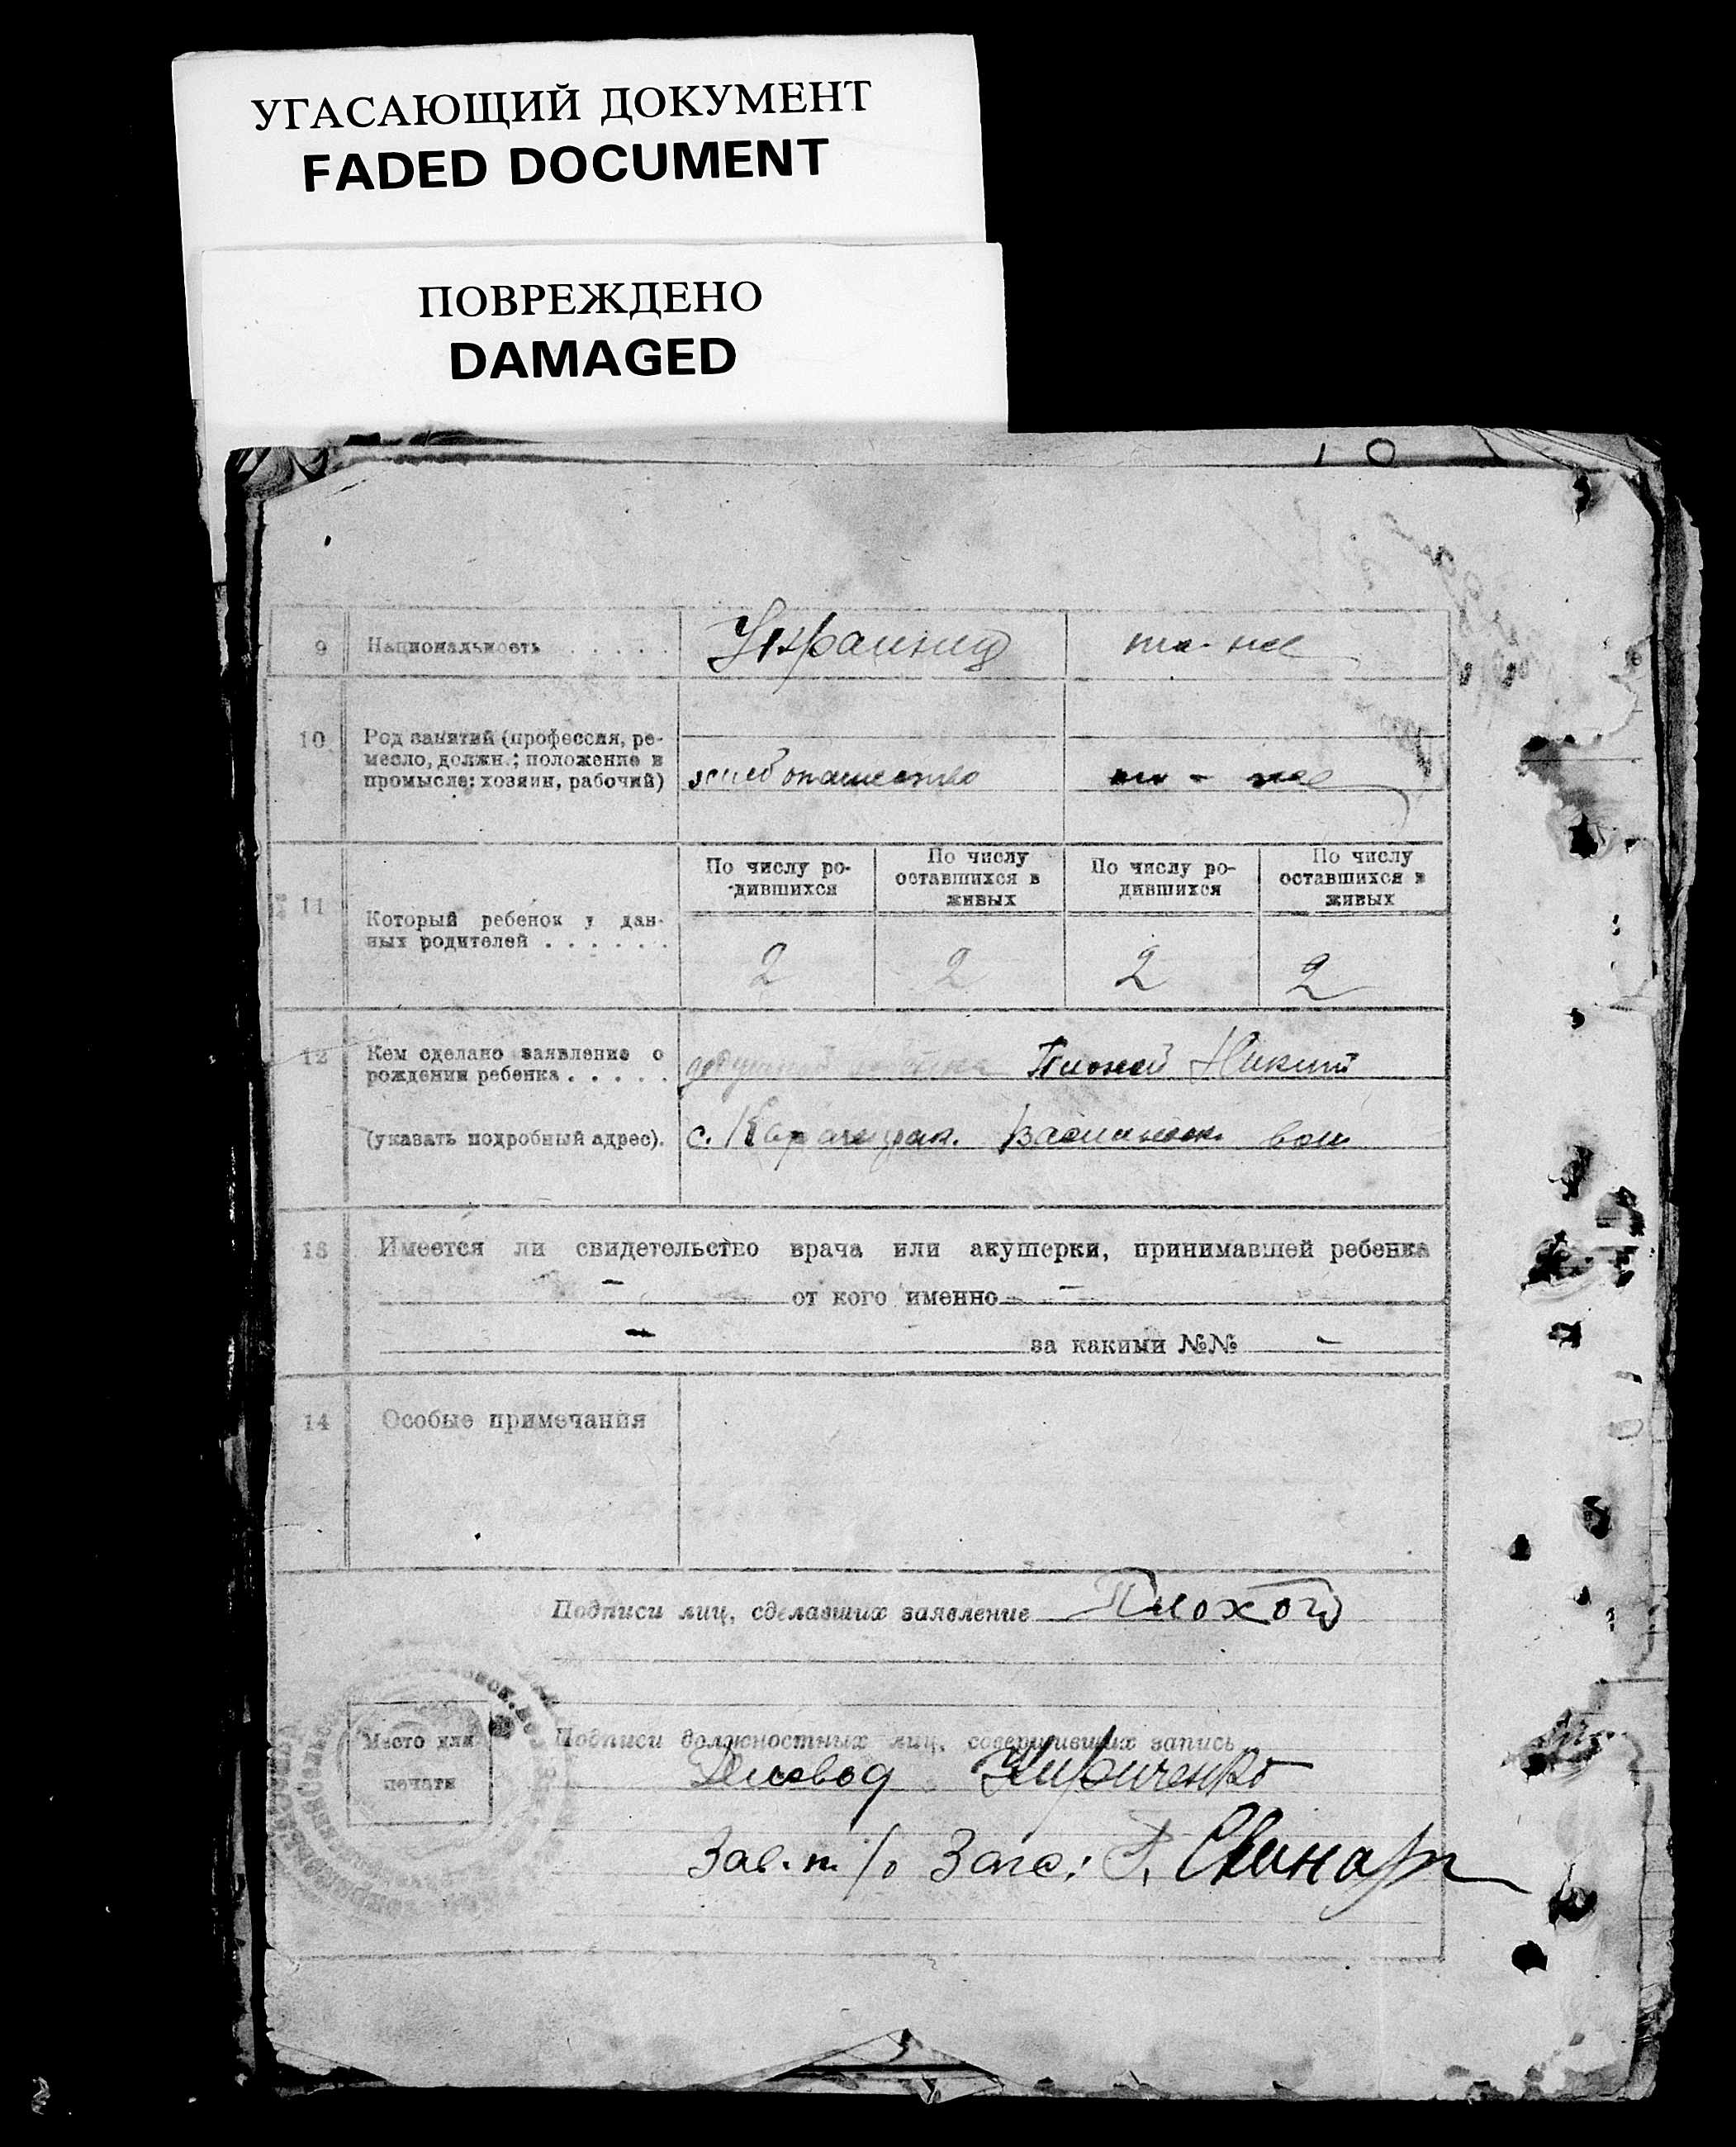 УГАСАЮЩИЙ ДОКУМЕНТ
FADED DOCUMENT
ПОВРЕЖДЕНО
DAMAGED
10
9 Национальность . . . . . Украинец то-же
10 Род занятий (профессия, ре-
месло, должн.; положение в
промысле: хозяин, рабочий) хлебопашество то - же
11 Который ребенок у дан-
ных родителей . . . . . .
По числу ро-
дившихся
По числу
оставшихся в
живых
По числу ро-
дившихся
По числу
оставшихся в
живых
2 2 2 2
12 Кем сделано заявление о
рождении ребенка . . . . . Никит
(указать подробный адрес). с.
13 Имеется ли свидетельство врача или акушерки, принимавшей ребенка
– от кого именно –
– за какими №№ –
14 Особые примечания
Подписи лиц, сделавших заявление Плохой
Место для
печати
Подписи должностных лиц, совершивших запись
Деловод Кириченко
Зав. п/о Загс: Свинар